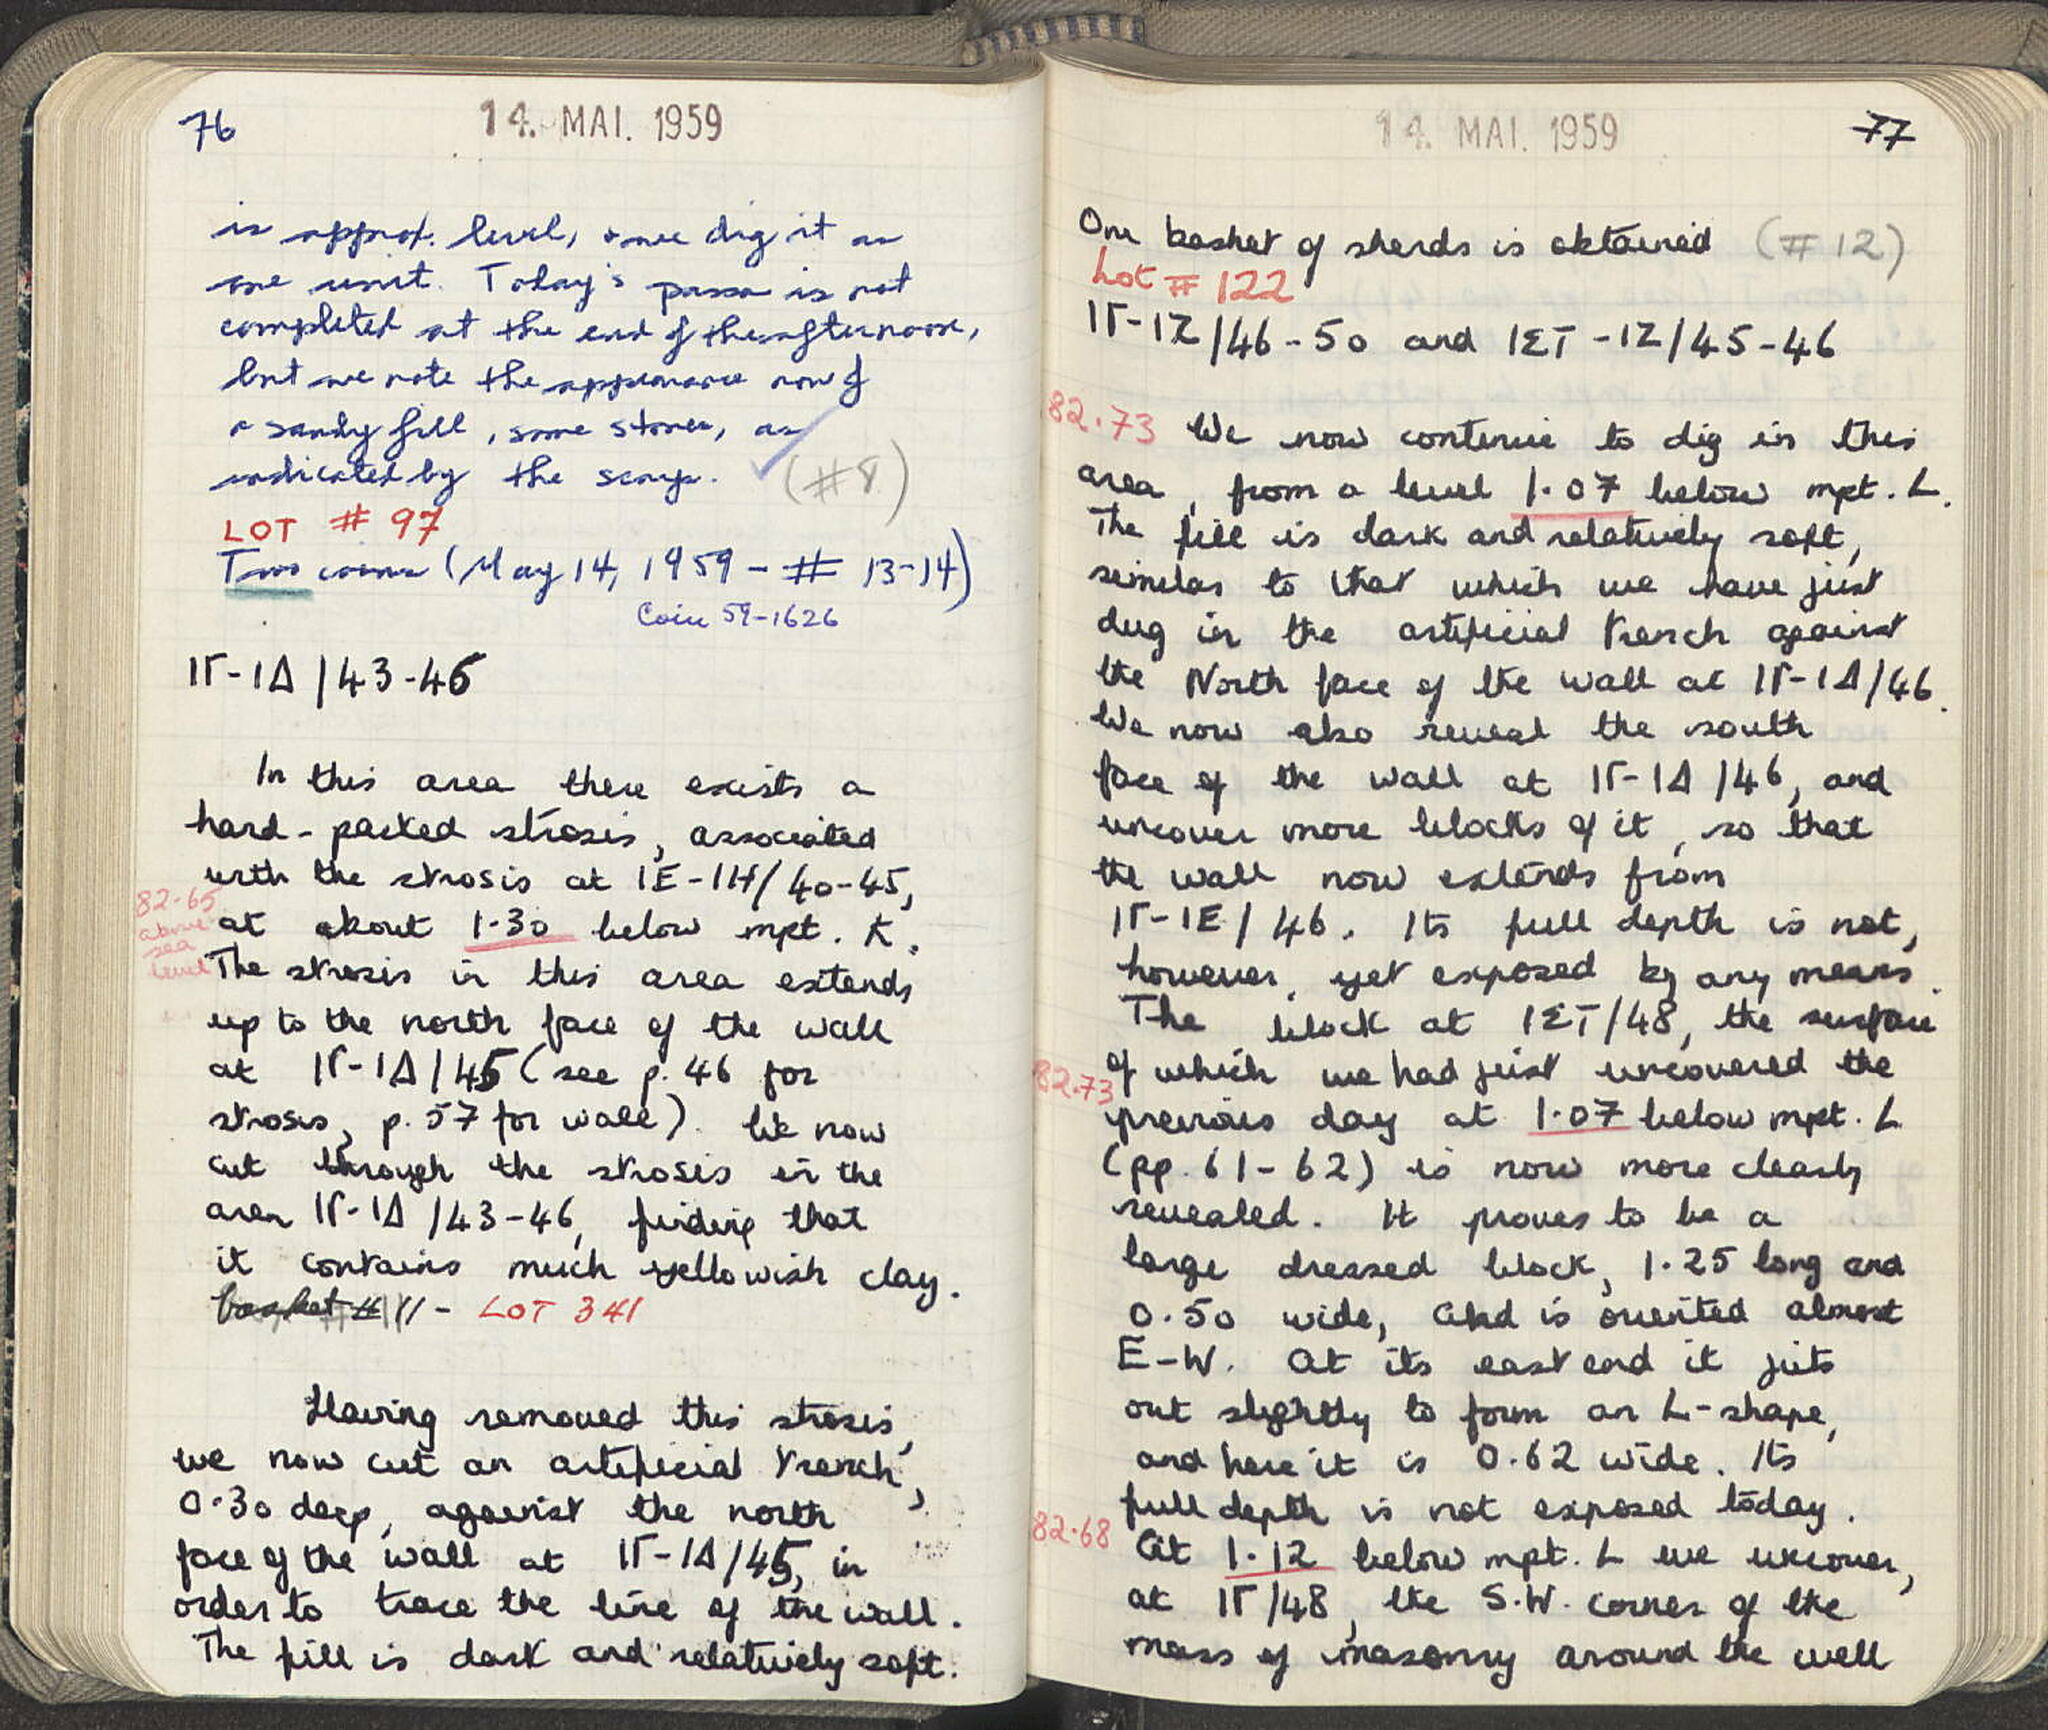 76
14. MAI. 1959
is approx. level, & we dig it as
one unit. Today's passa is not
completed at the end of the afternoon,
but we note the appearance now of
a sandy fill, some stones, as
indicated by the scarp. (#8)
LOT # 97
Two coins (May 14, 1959 - # 13-14)
Coin 59-1626
ΙΓ-ΙΔ/43-46
In this area there exists a
hard-packed strosis, associated
with the strosis at ΙΕ-ΙΗ/40-45,
82.65 above sea level
at about 1.30 below mpt. K.
The strosis in this area extends
up to the north face of the wall
at ΙΓ-ΙΔ/46 (see p. 46 for
strosis, p. 57 for wall). We now
cut through the strosis in the
area ΙΓ-ΙΔ/43-46, finding that
it contains much yellowish clay.
basket # 11 - LOT 341
Having removed this strosis,
we now cut an artificial trench,
0.30 deep, against the north
face of the wall at ΙΓ-ΙΔ/46, in
order to trace the line of the wall.
The fill is dark and relatively soft.
14. MAI. 1959
77
One basket of sherds is obtained (#12)
Lot # 122
ΙΓ-ΙΖ/46-50 and ΙΣΤ-ΙΖ/45-46
82.73 We now continue to dig in this
area, from a level 1.07 below mpt. L.
The fill is dark and relatively soft,
similar to that which we have just
dug in the artificial trench against
the North face of the wall at ΙΓ-ΙΔ/46.
We now also reveal the south
face of the wall at ΙΓ-ΙΔ/46, and
uncover more blocks of it, so that
the wall now extends from
ΙΓ-ΙΕ/46. Its full depth is not,
however, yet exposed by any means.
The block at ΙΣΤ/48, the surface
of which we had just uncovered the
82.73 previous day at 1.07 below mpt. L
(pp. 61-62) is now more clearly
revealed. It proves to be a
large dressed block, 1.25 long and
0.50 wide, and is oriented almost
E-W. At its east end it juts
out slightly to form an L-shape,
and here it is 0.62 wide. Its
full depth is not exposed today.
82.68 At 1.12 below mpt. L we uncover,
at ΙΓ/48, the S.W. corner of the
mass of masonry around the well